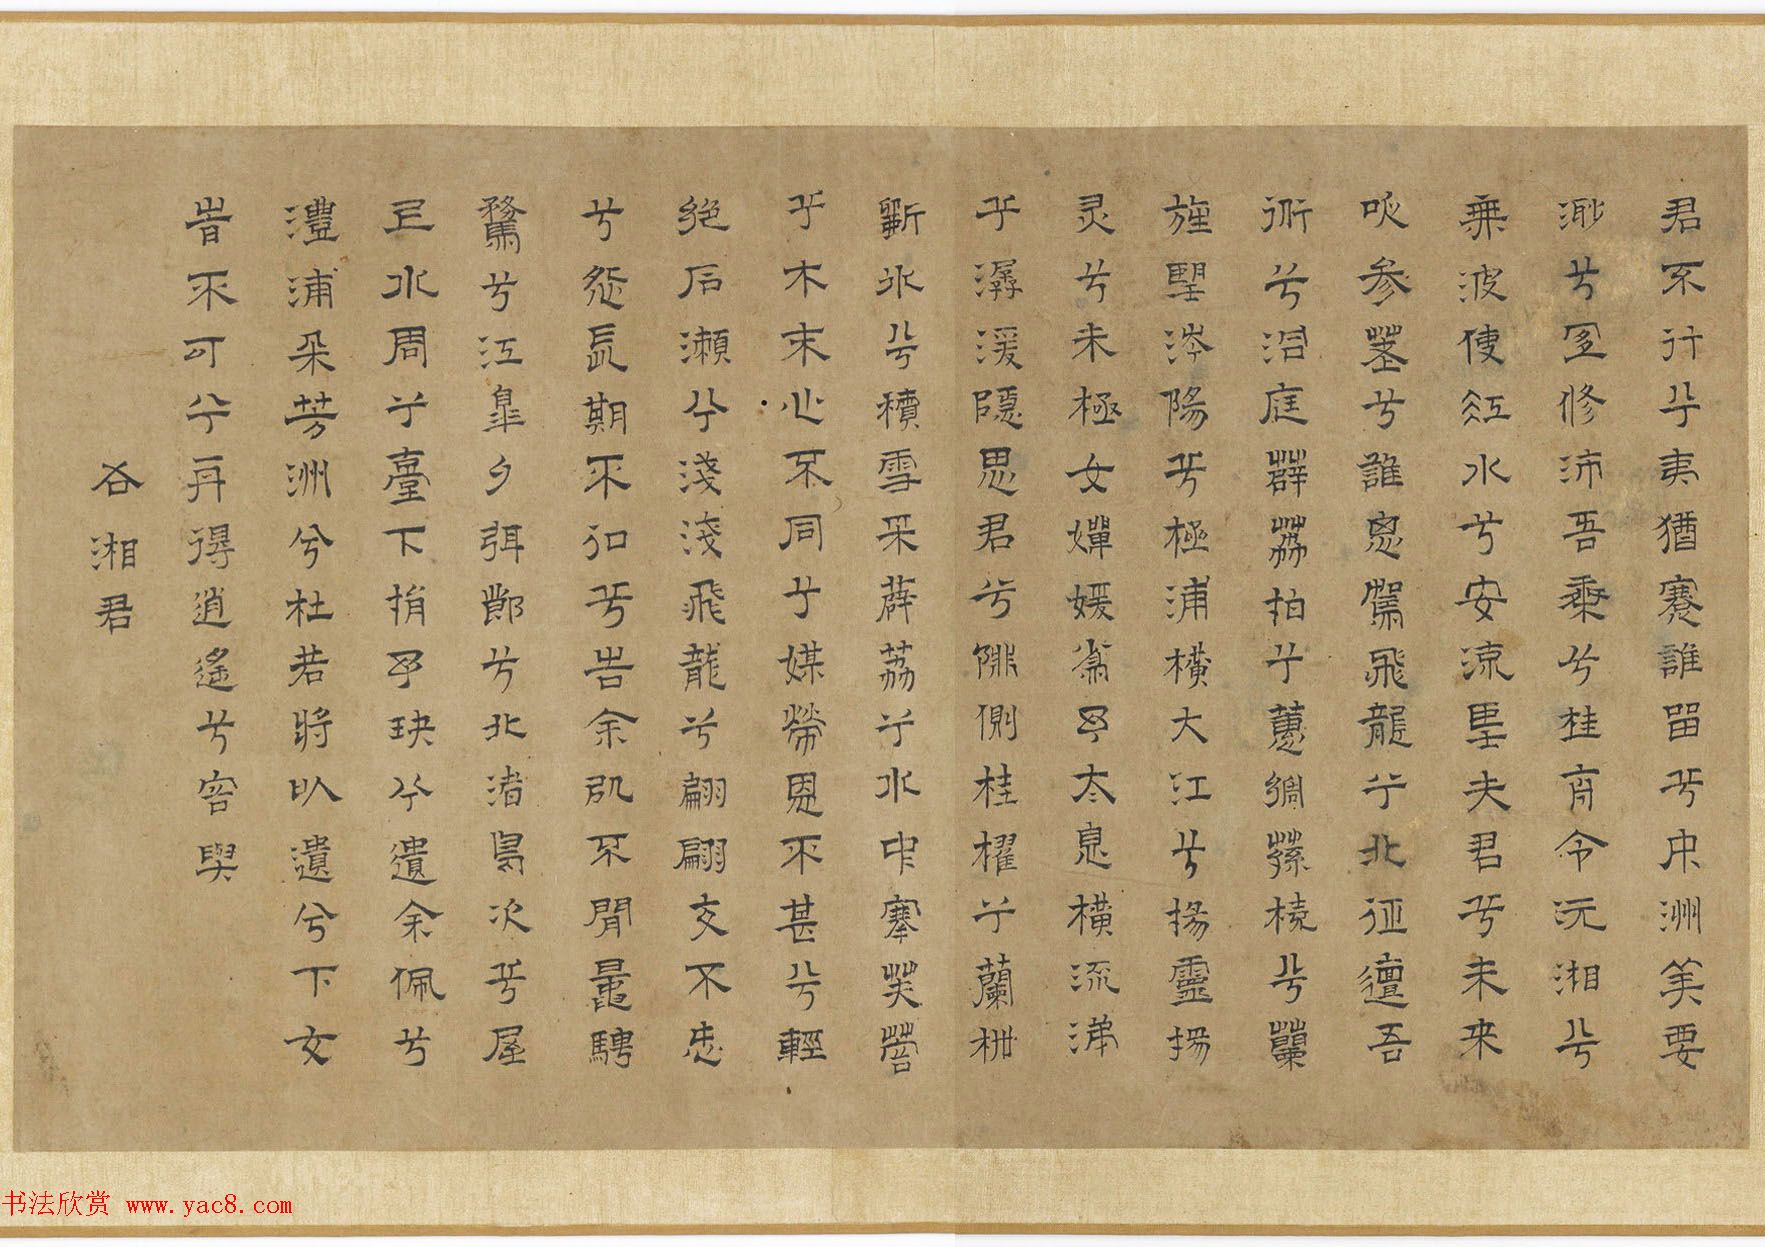 君不行兮夷猶蹇誰留兮中洲美要
渺兮宜修沛吾乘兮桂舟令沅湘兮
無波使江水兮安流望夫君兮未来
吹參差兮誰思駕飛龍兮北征邅吾
衜兮洞庭薜荔拍兮蕙綢蓀橈兮蘭
旌望涔陽兮極浦橫大江兮揚靈揚
灵兮未極女嬋媛為余太息橫流涕
兮潺湲隱思君兮陫側桂櫂兮蘭枻
斲冰兮積雪采薜荔兮水中搴芙蓉
兮木末心不同兮媒勞恩不甚兮輕
絕石瀨兮淺淺飛龍兮翩翩交不忠
兮怨長期不信兮告余以不閒鼂騁
騖兮江皋夕弭節兮北渚鳥次兮屋
上水周兮堂下捐余玦兮遺余佩兮
澧浦采芳洲兮杜若將以遺兮下女
旹不可兮再得逍遙兮容與
右湘君
书法欣赏 www.yac8.com